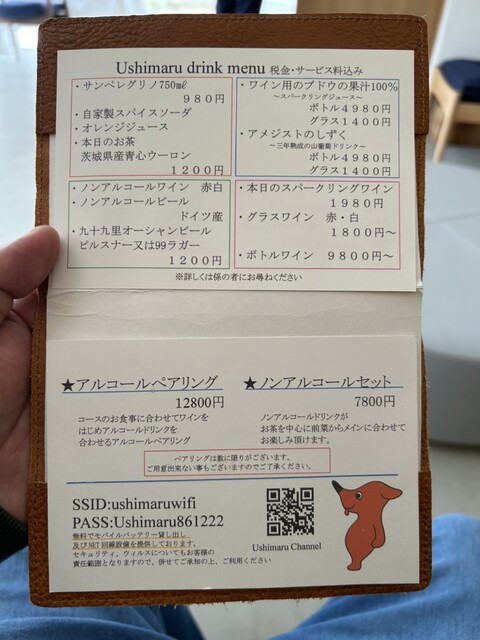 Ushimaru drink menu 税金・サービス料込み
・サンペレグリノ750㎖
980円
・自家製スパイスソーダ
・オレンジジュース
・本日のお茶
茨城県産青心ウーロン
1200円
・ワイン用のブドウの果汁100%
～スパークリングジュース～
ボトル4980円
グラス1400円
・アメジストのしずく
～三年熟成の山葡萄ドリンク～
ボトル4980円
グラス1400円
・ノンアルコールワイン 赤白
・ノンアルコールビール
ドイツ産
・九十九里オーシャンビール
ピルスナー又は99ラガー
1200円
・本日のスパークリングワイン
1980円
・グラスワイン 赤・白
1800円～
・ボトルワイン 9800円～
※詳しくは係の者にお尋ねください
★アルコールペアリング
12800円
コースのお食事に合わせてワインを
はじめアルコールドリンクを
合わせるアルコールペアリング
★ノンアルコールセット
7800円
ノンアルコールドリンクが
お茶を中心に前菜からメインに合わせて
お楽しみ頂けます。
ペアリングは数に限りがございます。
ご用意出来ない事もございますのでご了承ください。
SSID:ushimaruwifi
PASS:Ushimaru861222
無料でモバイルバッテリー貸し出し
及びNET回線設備を提供しております。
セキュリティ、ウィルスについてもお客様の
責任範囲となりますので、併せてご承知の上、ご利用ください
Ushimaru Channel